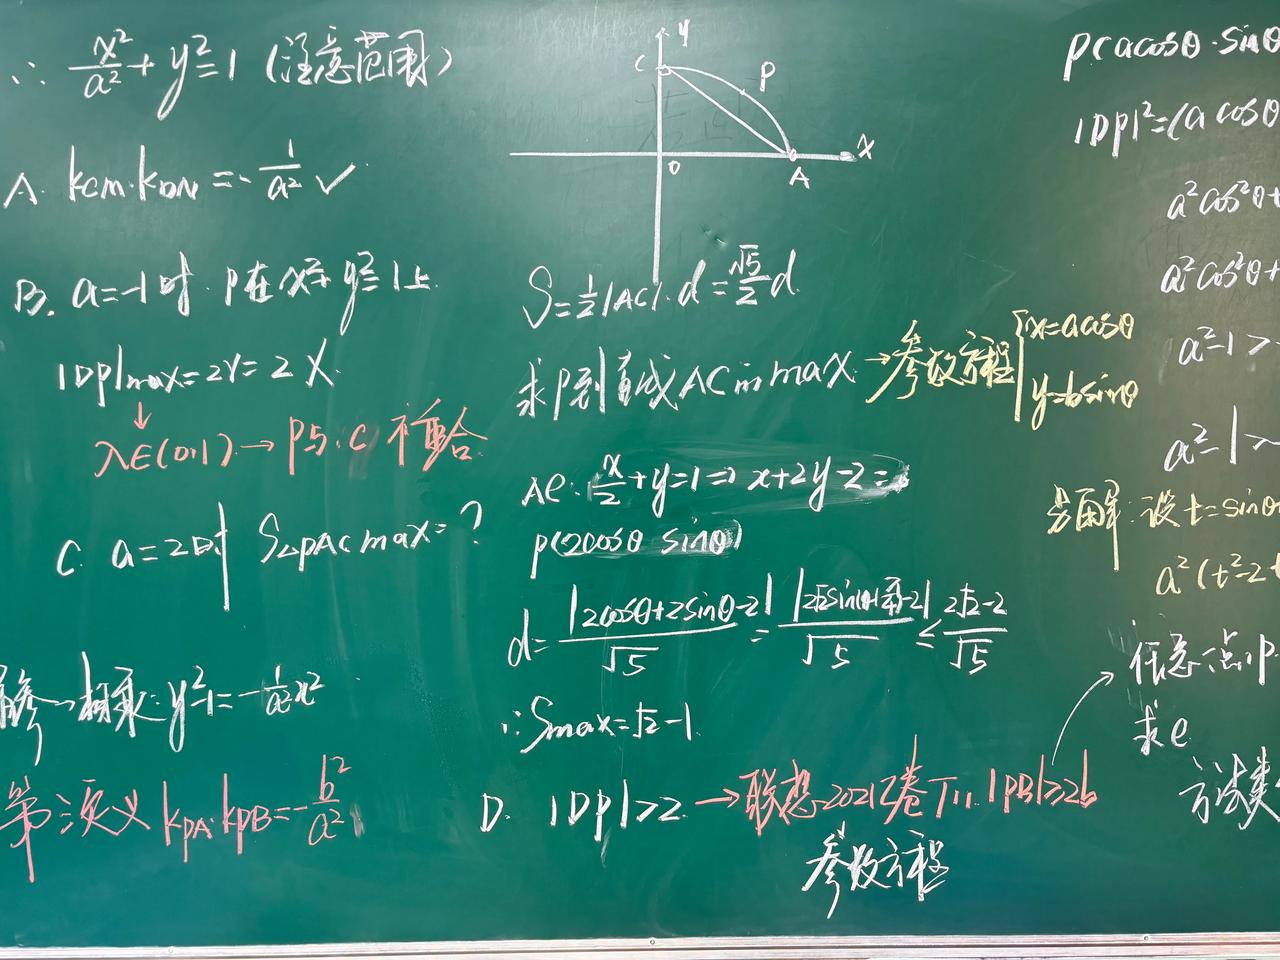 ∴ x²/a² + y² = 1 (注意范围)
A. kCM·kDN = -1/a² ✓
B. a=-1时 P在x²+y²=1上
|DP|max=2r=2 ×
↓
λ∈(0,1) → P与C不重合
C. a=2时 S△PACmax=?
消参→相乘: y²-1=-1/a²x²
第三定义 kPA·kPB=-b²/a²
y
C
P
O
A
x
S=1/2|AC|·d=√5/2 d
求P到直线AC的max → 参数方程 { x=acosθ
y=bsinθ
AC: x/2+y=1 ⇒ x+2y-2=0
P(2cosθ sinθ)
d=|2cosθ+2sinθ-2|/√5=|2√2sin(θ+π/4)-2|/√5≤(2√2-2)/√5
∴Smax=√2-1
D. |DP|>2 → 联想2021乙卷T11 |PB|>2b
参数方程
P(acosθ·sinθ
|DP|²=(acosθ
a²cos²θ+
a²cos²θ+
a²-1>
a²-1>
另解: 设t=sinθ
a²(t²-2t
任意一点P
求e
方法类